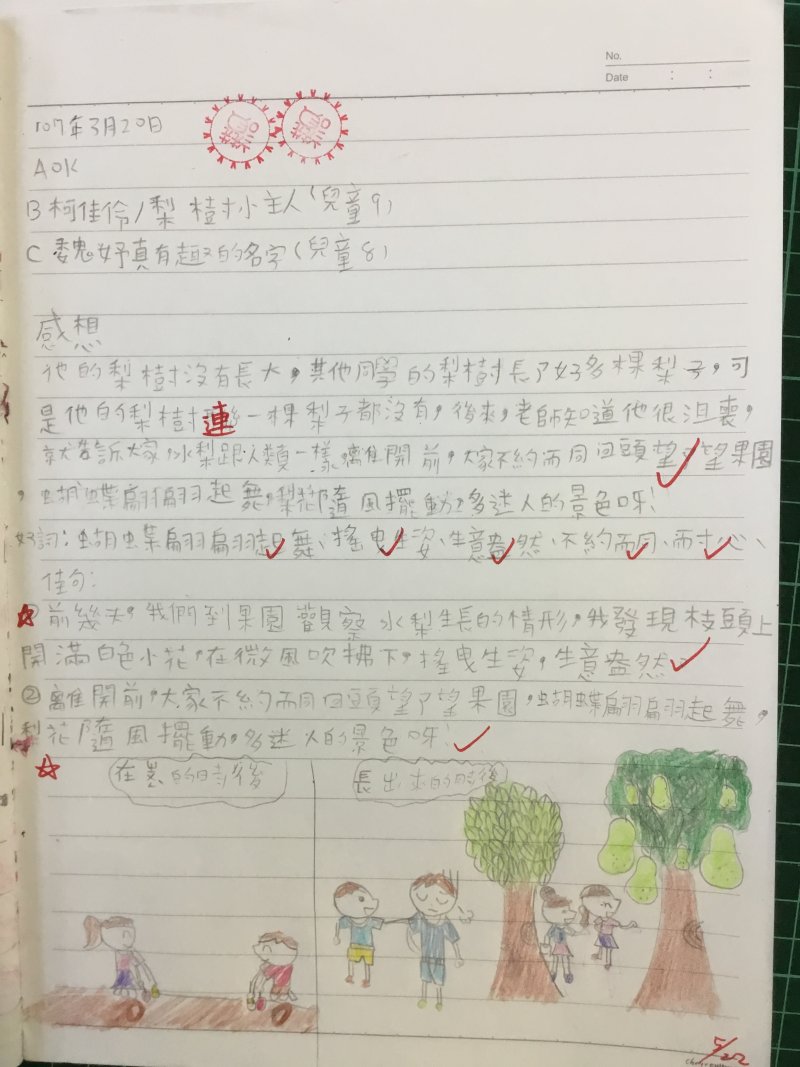 No.
Date : :
107年3月20日
AOK
B柯佳伶/梨樹小主人(兒童9)
C魏妤真有趣的名字(兒童8)
感想
他的梨樹沒有長大,其他同學的梨樹長了好多棵梨子,可
是他的梨樹連一棵梨子都沒有,後來,老師知道他很沮喪,
就告訴大家,水梨跟人類一樣,離開前,大家不約而同回頭望了望果園
,蝴蝶翩翩起舞,梨花隨風擺動,多迷人的景色呀!
好詞:蝴蝶翩翩起舞、搖曳生姿、生意盎然、不約而同、而寸心、
佳句:
①前幾天,我們到果園觀察水梨生長的情形,我發現枝頭上
開滿白色小花,在微風吹拂下,搖曳生姿,生意盎然
②離開前,大家不約而同回頭望了望果園,蝴蝶翩翩起舞,
梨花隨風擺動,多迷人的景色呀!
在 的時後 長出來的時後
5/22